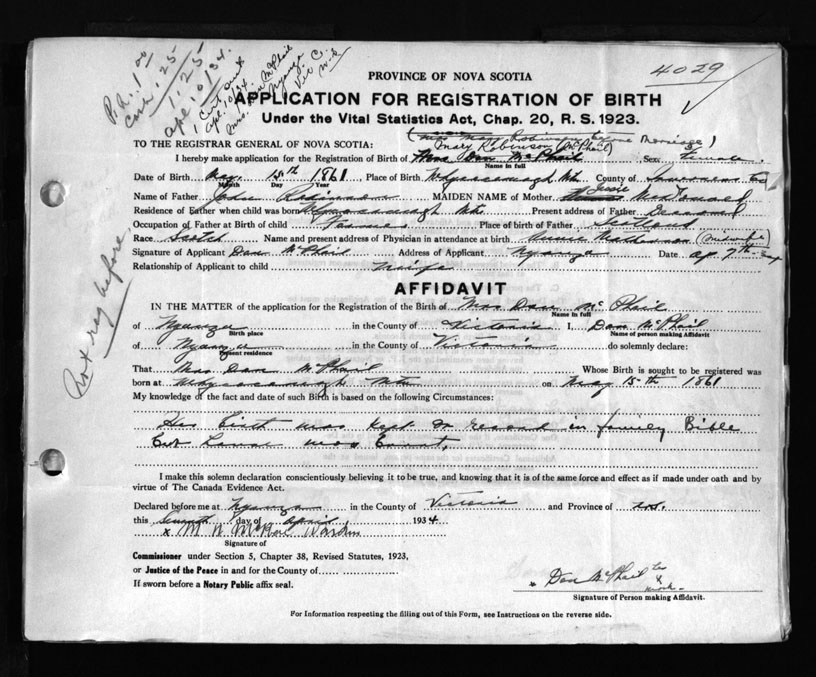 P.R. 1.00
Cert. .25
1.25
Apl. 10/34.
1 Cert. sent
Apl. 10/34
Mrs. Dan McPhail
Nyanza
Vic. C.
4029
PROVINCE OF NOVA SCOTIA
APPLICATION FOR REGISTRATION OF BIRTH
Under the Vital Statistics Act, Chap. 20, R. S. 1923.
Mary Robinson before Marriage)
TO THE REGISTRAR GENERAL OF NOVA SCOTIA: Mary Robinson (McPhail)
I hereby make application for the Registration of Birth of Mrs Dan McPhail Sex: Female.
Name in full
Date of Birth May 15th 1861 Place of Birth Whycocomagh Mtn County of Inverness
Month Day Year
Jessie
Name of Father John Robinson MAIDEN NAME of Mother McDonald
Residence of Father when child was born Whycocomagh Mtn. Present address of Father Deceased
Occupation of Father at Birth of child Farmer Place of birth of Father Scotland
Race Scotch Name and present address of Physician in attendance at birth Matheson (Midwife)
Signature of Applicant Dan McPhail Address of Applicant Nyanza Date Ap. 7th
Relationship of Applicant to child
Not reg before
AFFIDAVIT
IN THE MATTER of the application for the Registration of the Birth of Mrs Dan McPhail
Name in full
of Nyanza in the County of Victoria I, Dan McPhail
Birth place Name of person making Affidavit
of Nyanza in the County of Victoria do solemnly declare:
Present residence
That Mrs Dan McPhail Whose Birth is sought to be registered was
born at Whycocomagh Mtn on May 15th 1861
My knowledge of the fact and date of such Birth is based on the following Circumstances:
Her birth was kept on record in family Bible
but was burnt,
I make this solemn declaration conscientiously believing it to be true, and knowing that it is of the same force and effect as if made under oath and by
virtue of The Canada Evidence Act.
Declared before me at Nyanza in the County of Victoria and Province of N.S.
this Seventh day of April 1934
x M N McRae Warden
Signature of
Commissioner under Section 5, Chapter 38, Revised Statutes, 1923,
or Justice of the Peace in and for the County of
If sworn before a Notary Public affix seal.
Dan McPhail his
x
mark
Signature of Person making Affidavit.
For Information respecting the filling out of this Form, see Instructions on the reverse side.